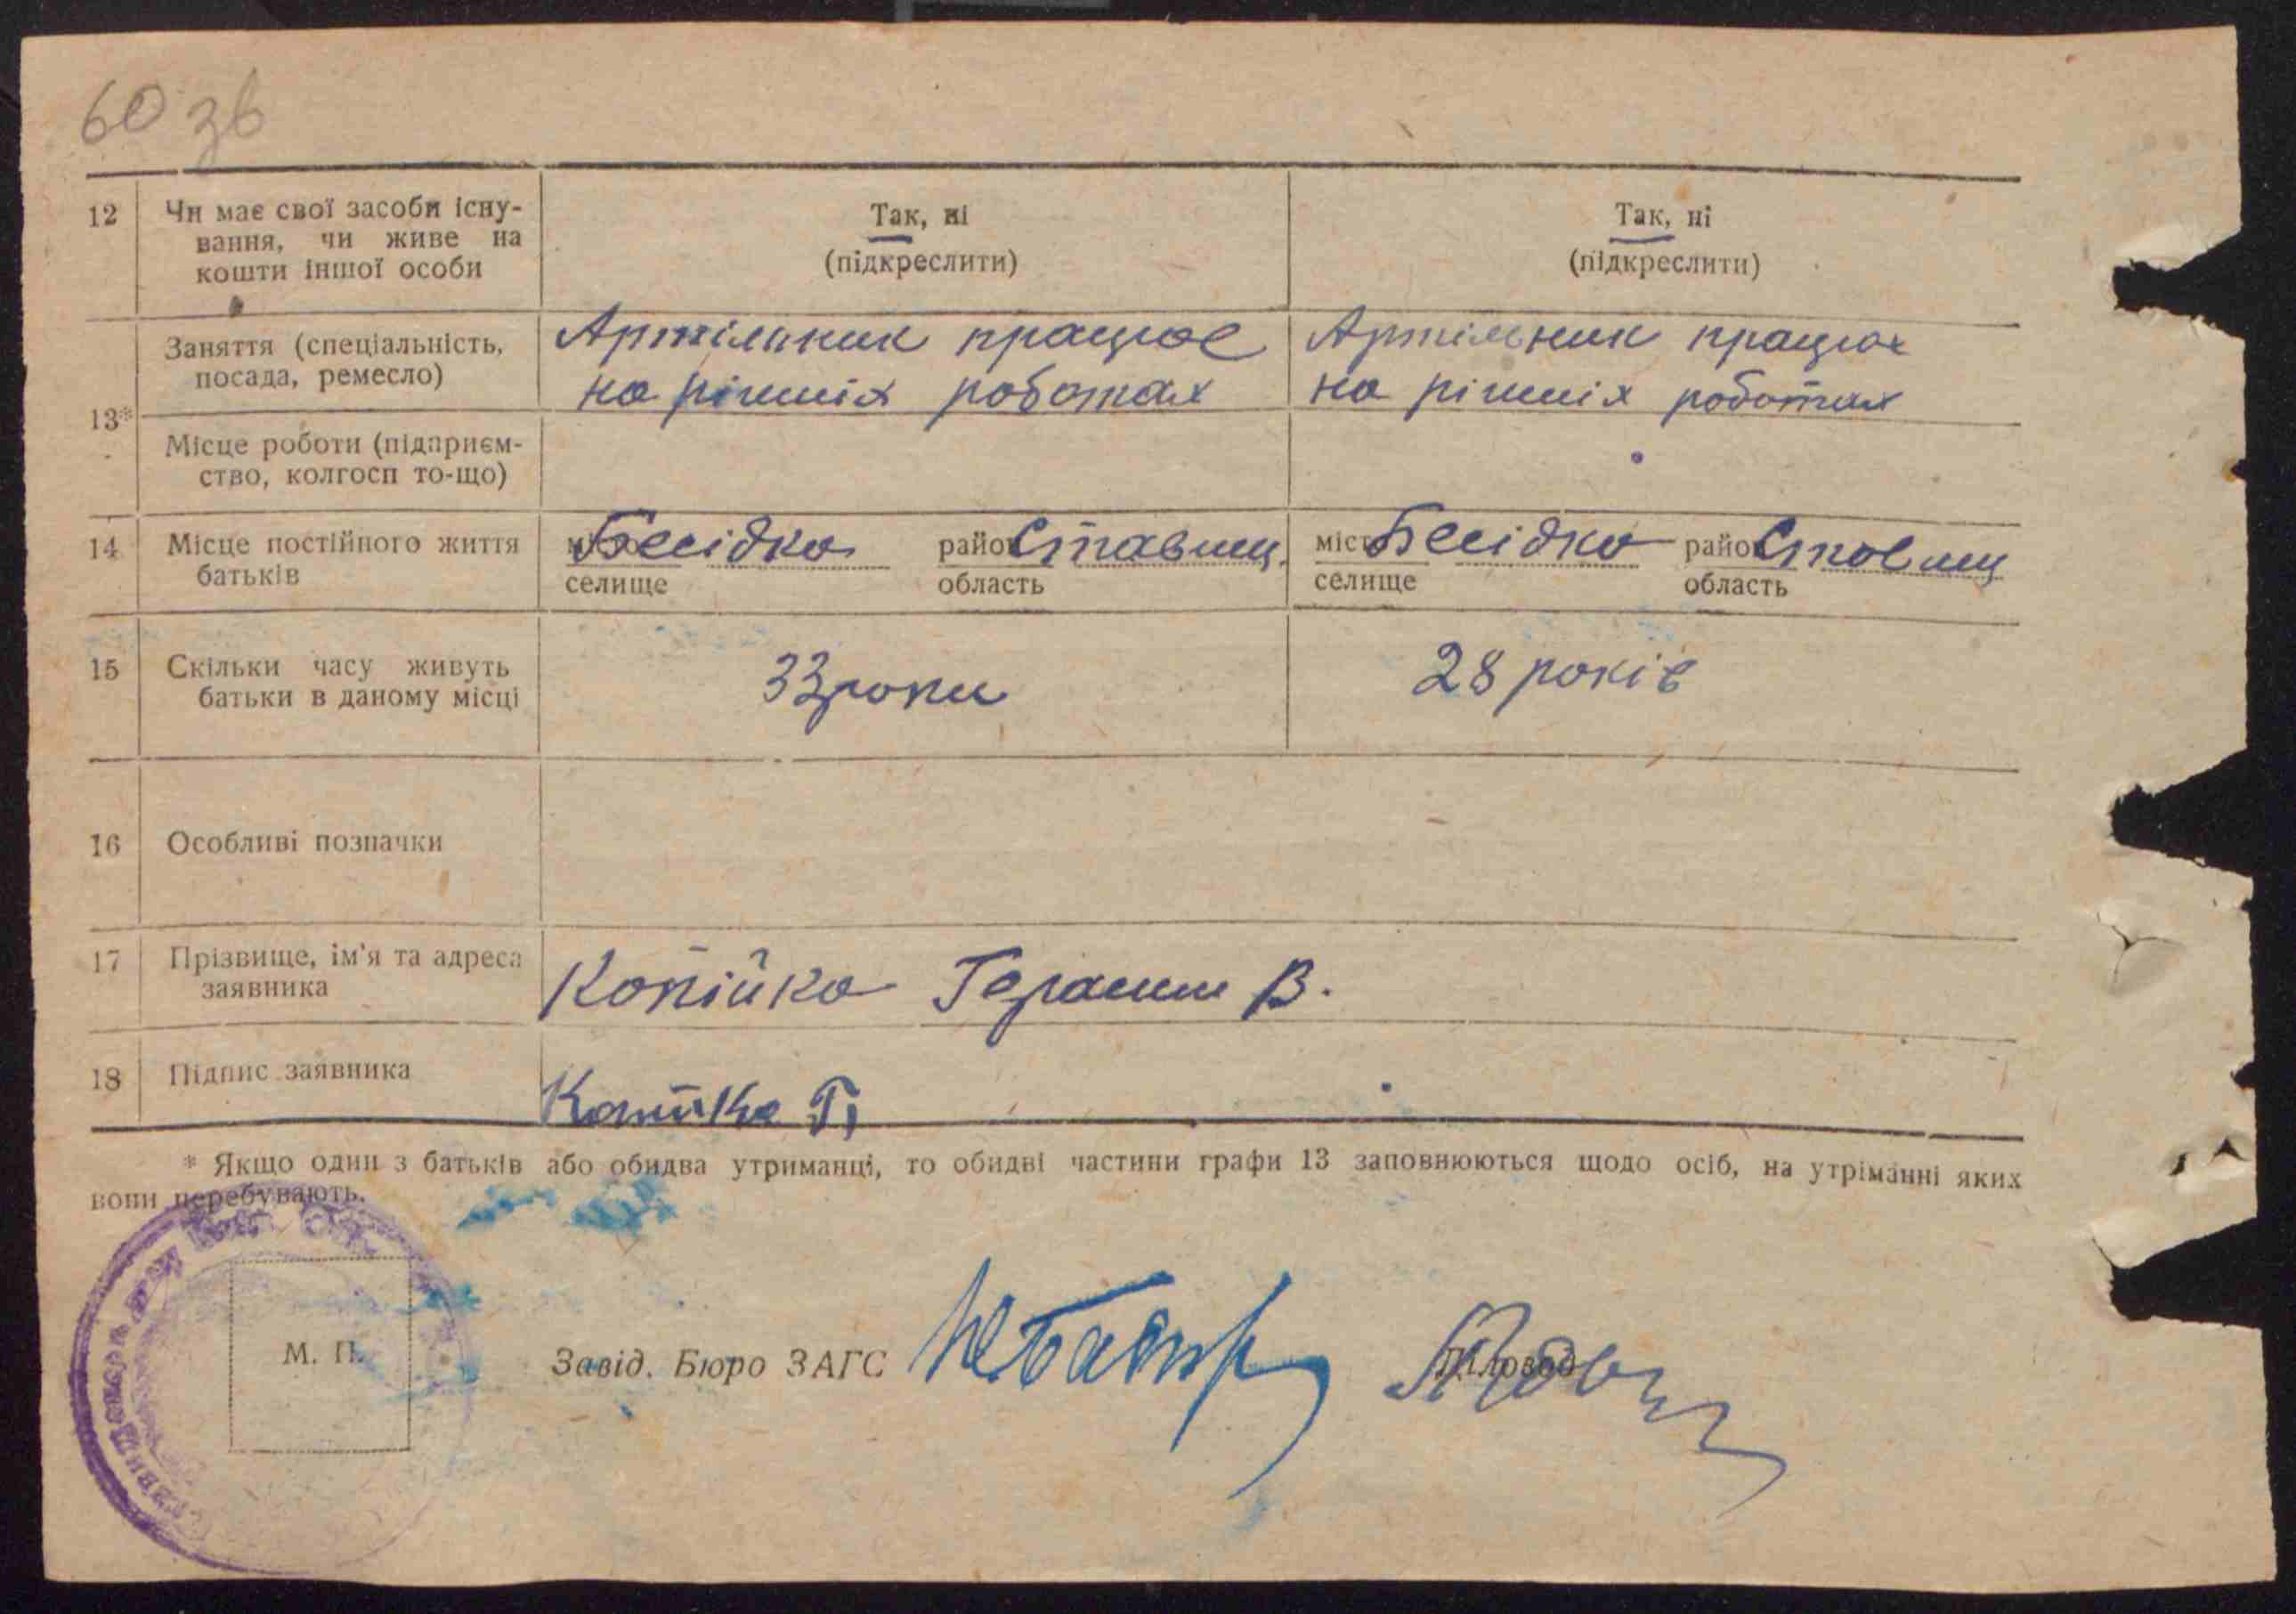 60 зв
12 Чи має свої засоби існу-
вання, чи живе на
кошти іншої особи
Так, ні
(підкреслити)
Так, ні
(підкреслити)
13*
Заняття (спеціальність,
посада, ремесло)
Артільник працює
на різних роботах
Артільник працює
на різних роботах
Місце роботи (підприєм-
ство, колгосп то-що)
14 Місце постійного життя
батьків
місто Бесідка район Ставищ.
селище область
місто Бесідка район Ставищ
селище область
15 Скільки часу живуть
батьки в даному місці
33 роки
28 років
16 Особливі позначки
17 Прізвище, ім'я та адреса
заявника
Копійка Герасим В.
18 Підпис заявника
Копійка Г.
* Якщо один з батьків або обидва утриманці, то обидві частини графи 13 заповнюються щодо осіб, на утріманні яких
вони перебувають.
М. П.
Завід. Бюро ЗАГС
Діловод